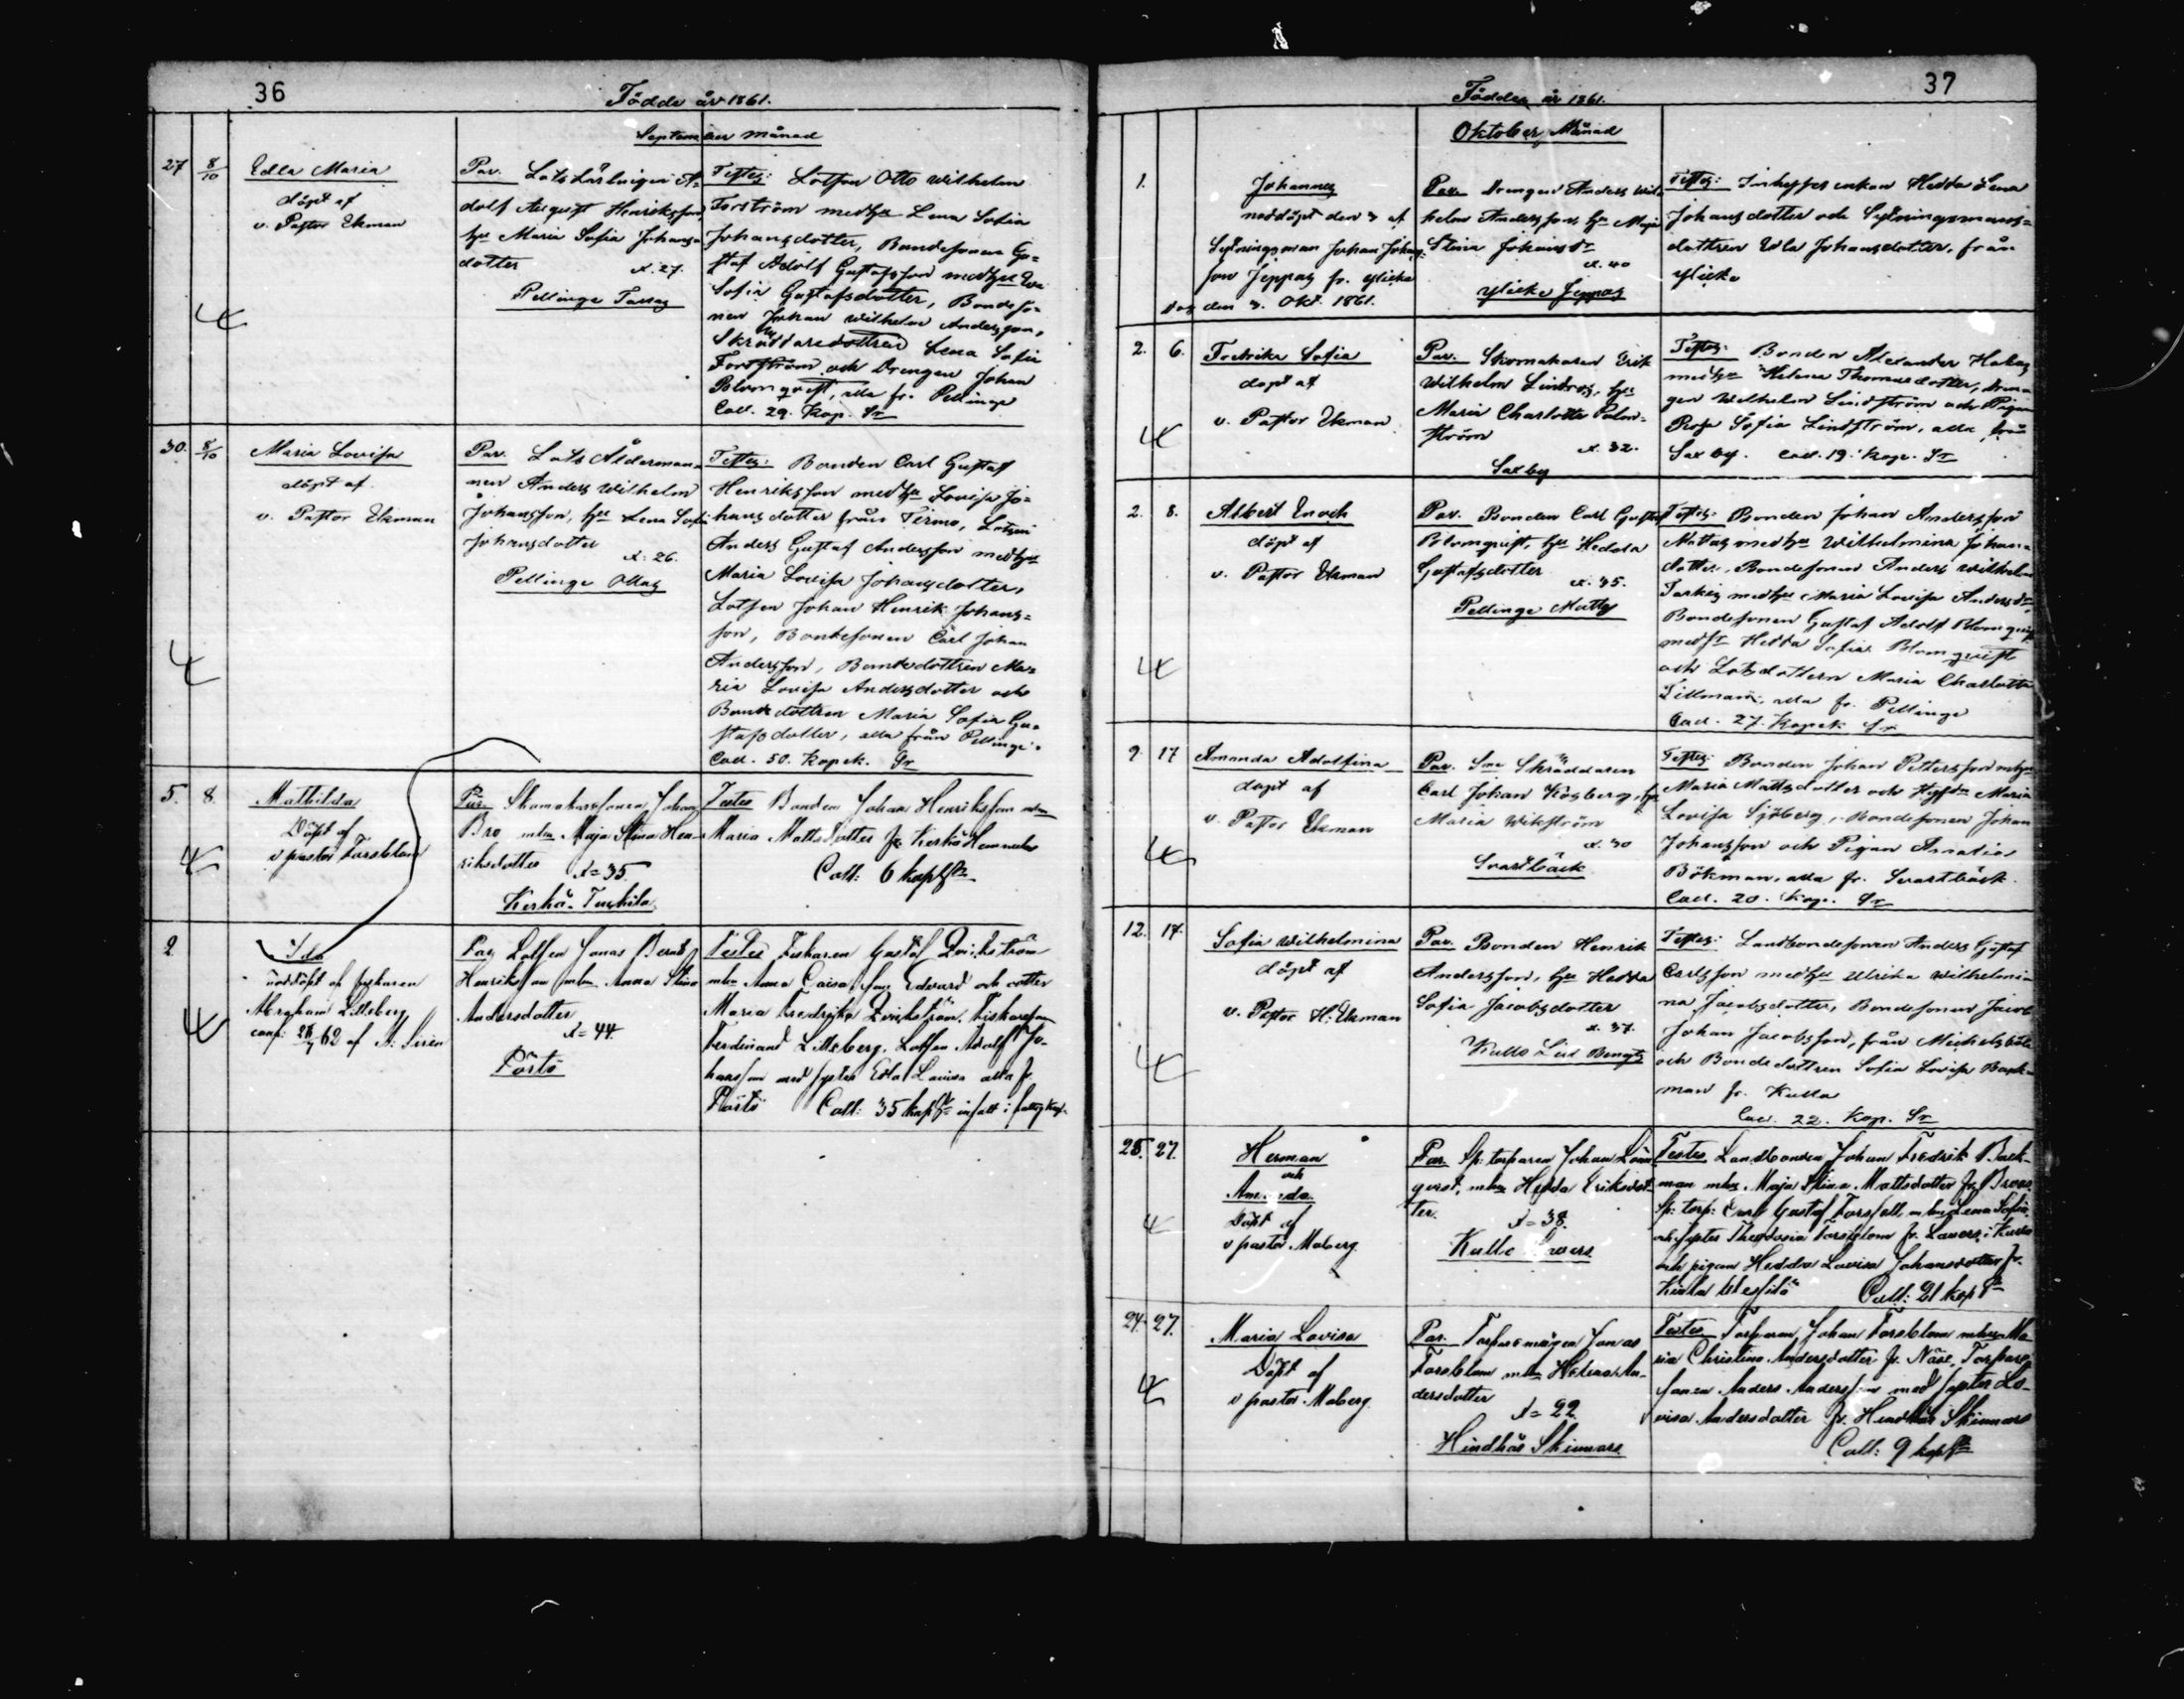 36
Födde år 1861.
September månad
27 8/10 Edla Maria
döpt af
v. Pastor Ekman
Par. Lotslärlingen A=
dolf August Henriksson,
hu Maria Sofia Johans=
dotter
x. 27.
Pellinge Tassas
Testes: Lotsen Otto Wilhelm
Forström med hu Lena Sofia
Johansdotter, Bondesonen Gu=
staf Adolf Gustafsson med hu Eva
Sofia Gustafsdotter, Bondeso=
nen Johan Wilhelm Andersson,
Skräddaredottren Lena Sofia
Forsström och Drengen Johan
Blomqvist, alla fr. Pellinge
Coll. 29. Kop. Sr
30. 8/10 Maria Lovisa
döpt af
v. Pastor Ekman
Par. Lots Ålderman=
nen Anders Wilhelm
Johansson, hu Lena Sofia
Johansdotter
x. 26.
Pellinge Ollas
Testes: Bonden Carl Gustaf
Henriksson med hu Lovisa Jo=
hansdotter från Tirmo, Lotsen
Anders Gustaf Andersson med hu
Maria Lovisa Johansdotter,
Lotsen Johan Henrik Johans=
son, Bondesonen Carl Johan
Andersson, Bondedottren Ma=
ria Lovisa Andersdotter och
Bondedottren Maria Sofia Gu=
stafsdotter, alla från Pellinge.
Coll. 50. Kopek. Sr
5. 8. Mathilda
Döpt af
v pastor Forsblom
Par. Skomakaresonen Johan
Bro mhu Maja Stina Hen=
riksdotter x=35.
Kerkö. Tuskila
Testes Bonden Johan Henriksson mhu
Maria Mattsdotter fr. Kerkö Hemmels
Coll: 6 kop Sr
2 Ida
nöddöpt af fiskaren
Abraham Lillsberg
conf: 62 af A. Siren
Par. Lotsen Jonas Bernd
Henriksson mhu Anna Stina
Andersdotter
x=44.
Pörtö
Testes Fiskaren Gustaf Qvickström
mhu Anna Caisa, son Edvard och dotter
Maria Fredrika Qvickström. Fiskareson
Ferdinand Lillsberg. Lotsen Adolf Jo-
hansson med syster Edla Lovisa alla fr.
Pörtö Coll: 35 kop Sr
37
Födde år 1861.
Oktober Månad
1. Johannes
nöddöpt den 3 af
Sytningsman Johan Johans=
son Jeppas fr. Ylicke
Dog den 3. Okt. 1861.
Par. Drengen Anders Wil=
helm Andersson, hu Maja
Stina Johansdr
x. 40
Ylicke Jeppas
Testes: Inhyses enkan Hedda Lena
Johansdotter och Sytningsmans=
dottren Edla Johansdotter, från
Ylicke
2. 6. Fredrika Sofia
döpt af
v. Pastor Ekman
Par. Skomakaren Erik
Wilhelm Lindros, hu
Maria Charlotta Palm=
ström
x. 32.
Saxby
Testes: Bonden Alexander Hakas
med hu Helena Thomasdotter, Dren=
gen Wilhelm Lindström och Pigan
Rosa Sofia Lindström, alla från
Saxby. Coll. 19. Kop. Sr
2. 8. Albert Enoch
döpt af
v. Pastor Ekman
Par. Bonden Carl Gustaf
Blomqvist, hu Hedda
Gustafsdotter
x. 35.
Pellinge Matts
Testes: Bonden Johan Andersson
Mattas med hu Wilhelmina Johans=
dotter, Bondesonen Anders Wilhelm
med hu Maria Lovisa Andersdr
Bondesonen Gustaf Adolf Blomqvist
med Sr Hedda Sofia Blomqvist
och Lotsdottern Maria Charlotta
Tillman, alla fr. Pellinge
Coll. 27. Kopek Sr
9. 17 Amanda Adolfina
döpt af
v. Pastor Ekman
Par. Sne Skräddaren
Carl Johan Högberg, hu
Maria Wikström
x. 30
Svartbäck
Testes: Bonden Johan Pettersson med hu
Maria Mattsdotter och Maria
Lovisa Sjöberg, Bondesonen Johan
Johansson och Pigan Amalia
Bökman, alla fr. Svartbäck.
Coll. 20. Kop. Sr
12. 17. Sofia Wilhelmina
döpt af
v. Pastor H: Ekman
Par. Bonden Henrik
Andersson, hu Hedda
Sofia Jacobsdotter
x. 37.
Kullo Lill Bengts
Testes: Landbondesonen Anders Gustaf
Carlsson med hu Ulrika Wilhelmi=
na Jacobsdotter, Bondesonen Jacob
Johan Jacobsson, från Mickelsböle
och Bondedottren Sofia Lovisa Back=
man fr. Kullo
Coll. 22. Kop. Sr
25. 27. Herman
och
Amanda
Döpt af
v pastor Moberg
Par. Sp: torparen Johan Lönn
qvist, mhu Hedda Eriksdot
ter.
x=38.
Kullo Lavers
Testes Landbonden Johan Fredrik Back-
man mhu Maja Stina Mattsdotter fr Broas.
Sp: torp: Carl Gustaf Forsfelt mhu Lena Sofia,
och syster Theodosia Forsblom fr. Lavers i Kullo
och pigan Hedda Lovisa Johansdotter fr.
Kiala Coll: 21 kop Sr
24. 27. Maria Lovisa
Döpt af
v pastor Moberg
Par. Torparemågen Jonas
Forsblom mhu Helena An-
dersdotter
x=22
Hindhår Skinnars
Testes Torparen Johan Forsblom mhu Ma
ria Christina Andersdotter fr. Näse, Torpare
sonen Anders Andersson med syster Lo-
visa Andersdotter fr. Hindhår Skinnars
Coll: 9 kop Sr